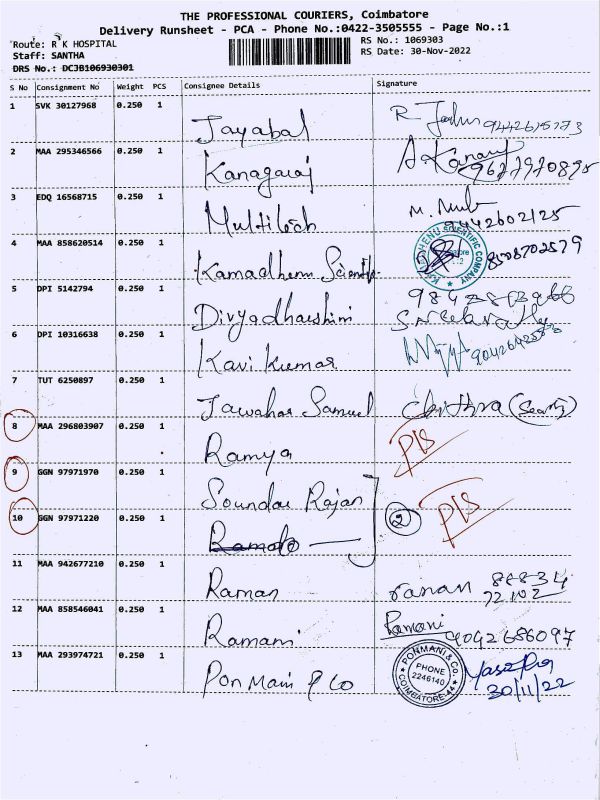 THE PROFESSIONAL COURIERS, Coimbatore
Delivery Runsheet - PCA - Phone No.:0422-3505555 - Page No.:1
Route: R K HOSPITAL
RS No.: 1069303
Staff: SANTHA
RS Date: 30-Nov-2022
DRS No.: DCJB106930301
S No Consignment No Weight PCS Consignee Details Signature
1 SVK 30127968 0.250 1 Jayabal R
2 MAA 295346566 0.250 1 Kanagaraj 9677970895
3 EDQ 16568715 0.250 1 Multitech 9442602125
4 MAA 858620514 0.250 1 Kamadhenu 8508702579
KAMADHENU SCIENTIFIC COMPANY
5 DPI 5142794 0.250 1 Divyadharshini
6 DPI 10316638 0.250 1 Kavi Kumar
7 TUT 6250897 0.250 1 Jawahar Samuel Chithra
8 MAA 296803907 0.250 1 Ramya P/S
9 GGN 97971970 0.250 1 Soundar Rajan P/S
10 GGN 97971220 0.250 1 2
11 MAA 942677210 0.250 1 Raman 88834
72102
12 MAA 858546041 0.250 1 Ramani Ramani 9042686097
13 MAA 293974721 0.250 1 Pon Mani & Co
PONMANI & CO.
PHONE
2246140
COIMBATORE-44
30/11/22